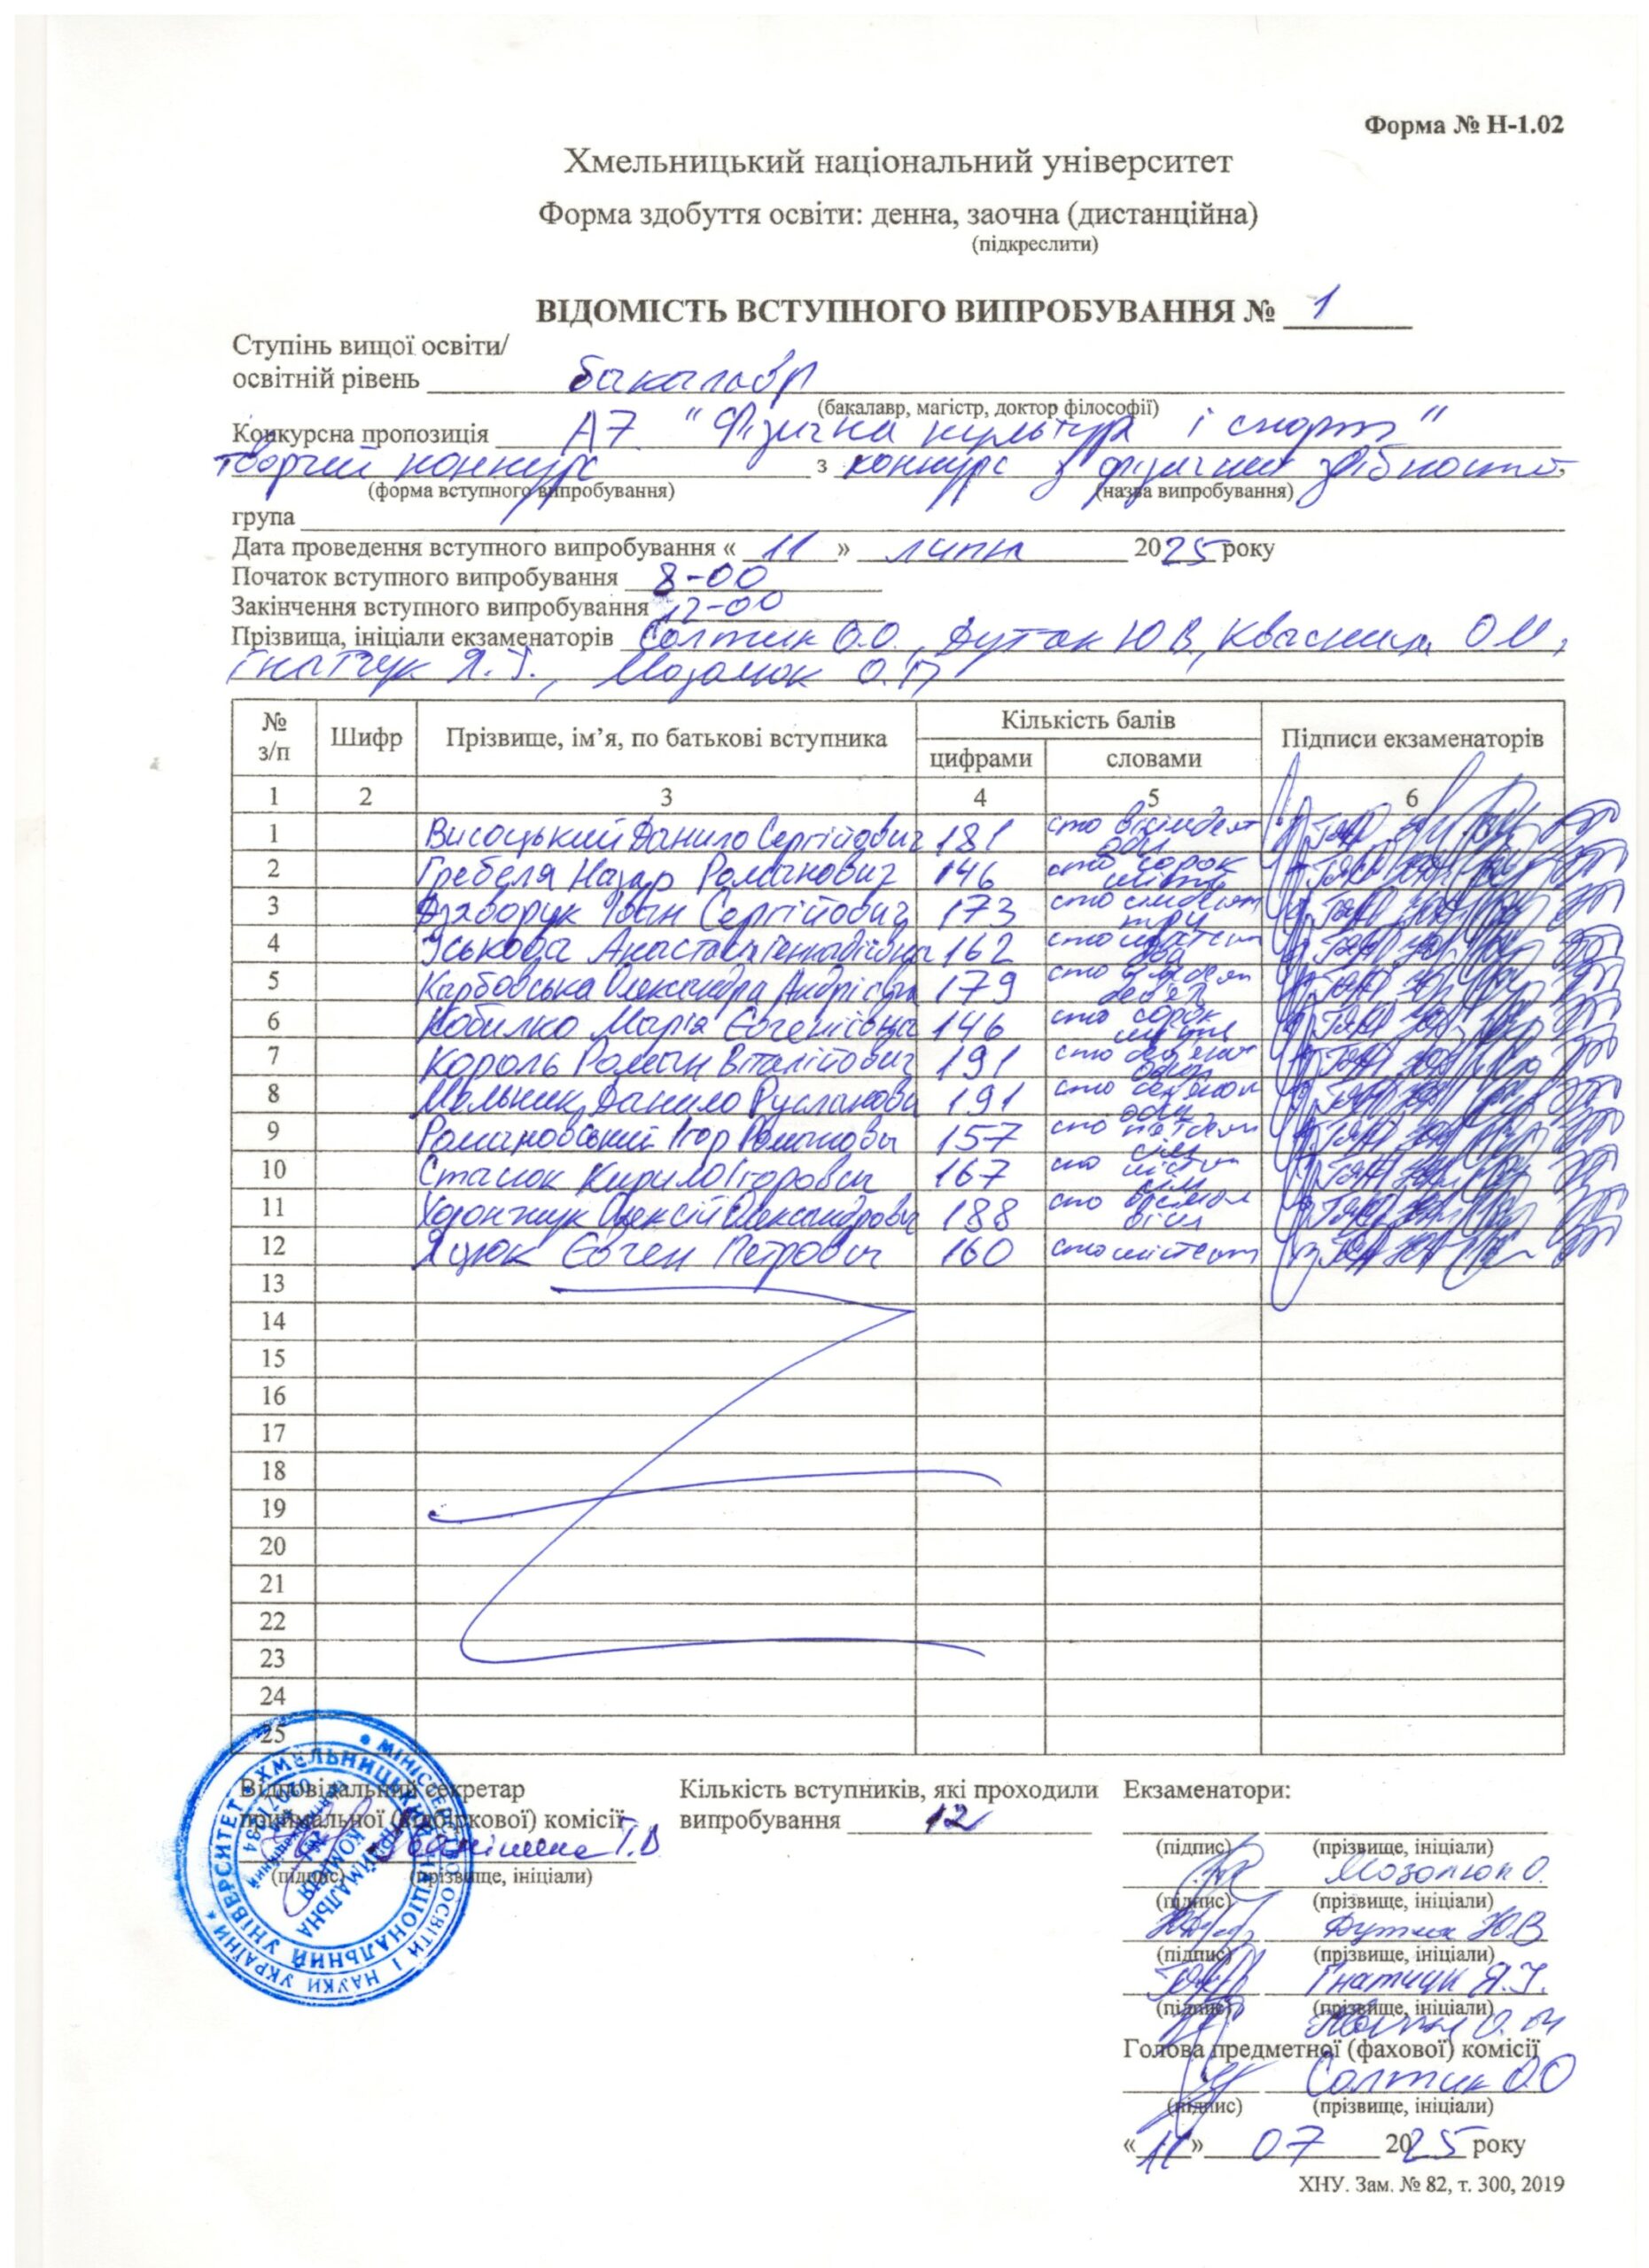 Форма № Н-1.02
Хмельницький національний університет
Форма здобуття освіти: денна, заочна (дистанційна)
(підкреслити)
ВІДОМІСТЬ ВСТУПНОГО ВИПРОБУВАННЯ № 1
Ступінь вищої освіти/
освітній рівень бакалавр
(бакалавр, магістр, доктор філософії)
Конкурсна пропозиція А7 "Фізична культура і спорт"
творчий конкурс з конкурс з фізичних здібностей,
(форма вступного випробування) (назва випробування)
група
Дата проведення вступного випробування « 11 » липня 2025 року
Початок вступного випробування 8-00
Закінчення вступного випробування 12-00
Прізвища, ініціали екзаменаторів Солтик О.О., Дутчак Ю.В., Квасниця О.М.,
Гнатчук Я.І., Мозолюк О.
№ з/п Шифр Прізвище, ім’я, по батькові вступника Кількість балів Підписи екзаменаторів
цифрами словами
1 2 3 4 5 6
1 Висоцький Данило Сергійович 181 сто вісімдесят один
2 Гребеля Назар Романович 146 сто сорок шість
3 Дзяворук Іван Сергійович 173 сто сімдесят три
4 Уськова Анастасія Геннадіївна 162 сто шістдесят два
5 Карбовська Олександра Андріївна 179 сто сімдесят дев'ять
6 Кобилко Марія Євгеніївна 146 сто сорок шість
7 Король Роман Віталійович 191 сто дев'яносто один
8 Мельник Данило Русланович 191 сто дев'яносто один
9 Романовський Ігор Романович 157 сто п'ятдесят сім
10 Стасюк Кирило Ігорович 167 сто шістдесят сім
11 Хоронжук Олексій Олександрович 188 сто вісімдесят вісім
12 Яцюк Євген Петрович 160 сто шістдесят
13
14
15
16
17
18
19
20
21
22
23
24
25
Відповідальний секретар
приймальної (відбіркової) комісії
Т.В
(підпис) (прізвище, ініціали)
МІНІСТЕРСТВО ОСВІТИ І НАУКИ УКРАЇНИ
ХМЕЛЬНИЦЬКИЙ НАЦІОНАЛЬНИЙ УНІВЕРСИТЕТ
ПРИЙМАЛЬНА КОМІСІЯ
Кількість вступників, які проходили
випробування 12
Екзаменатори:
(підпис) (прізвище, ініціали)
Мозолюк О.
(підпис) (прізвище, ініціали)
Дутчак Ю.В
(підпис) (прізвище, ініціали)
Гнатчук Я.І.
(підпис) (прізвище, ініціали)
О.М
Голова предметної (фахової) комісії
Солтик О.О
(підпис) (прізвище, ініціали)
« 11 » 07 2025 року
ХНУ. Зам. № 82, т. 300, 2019